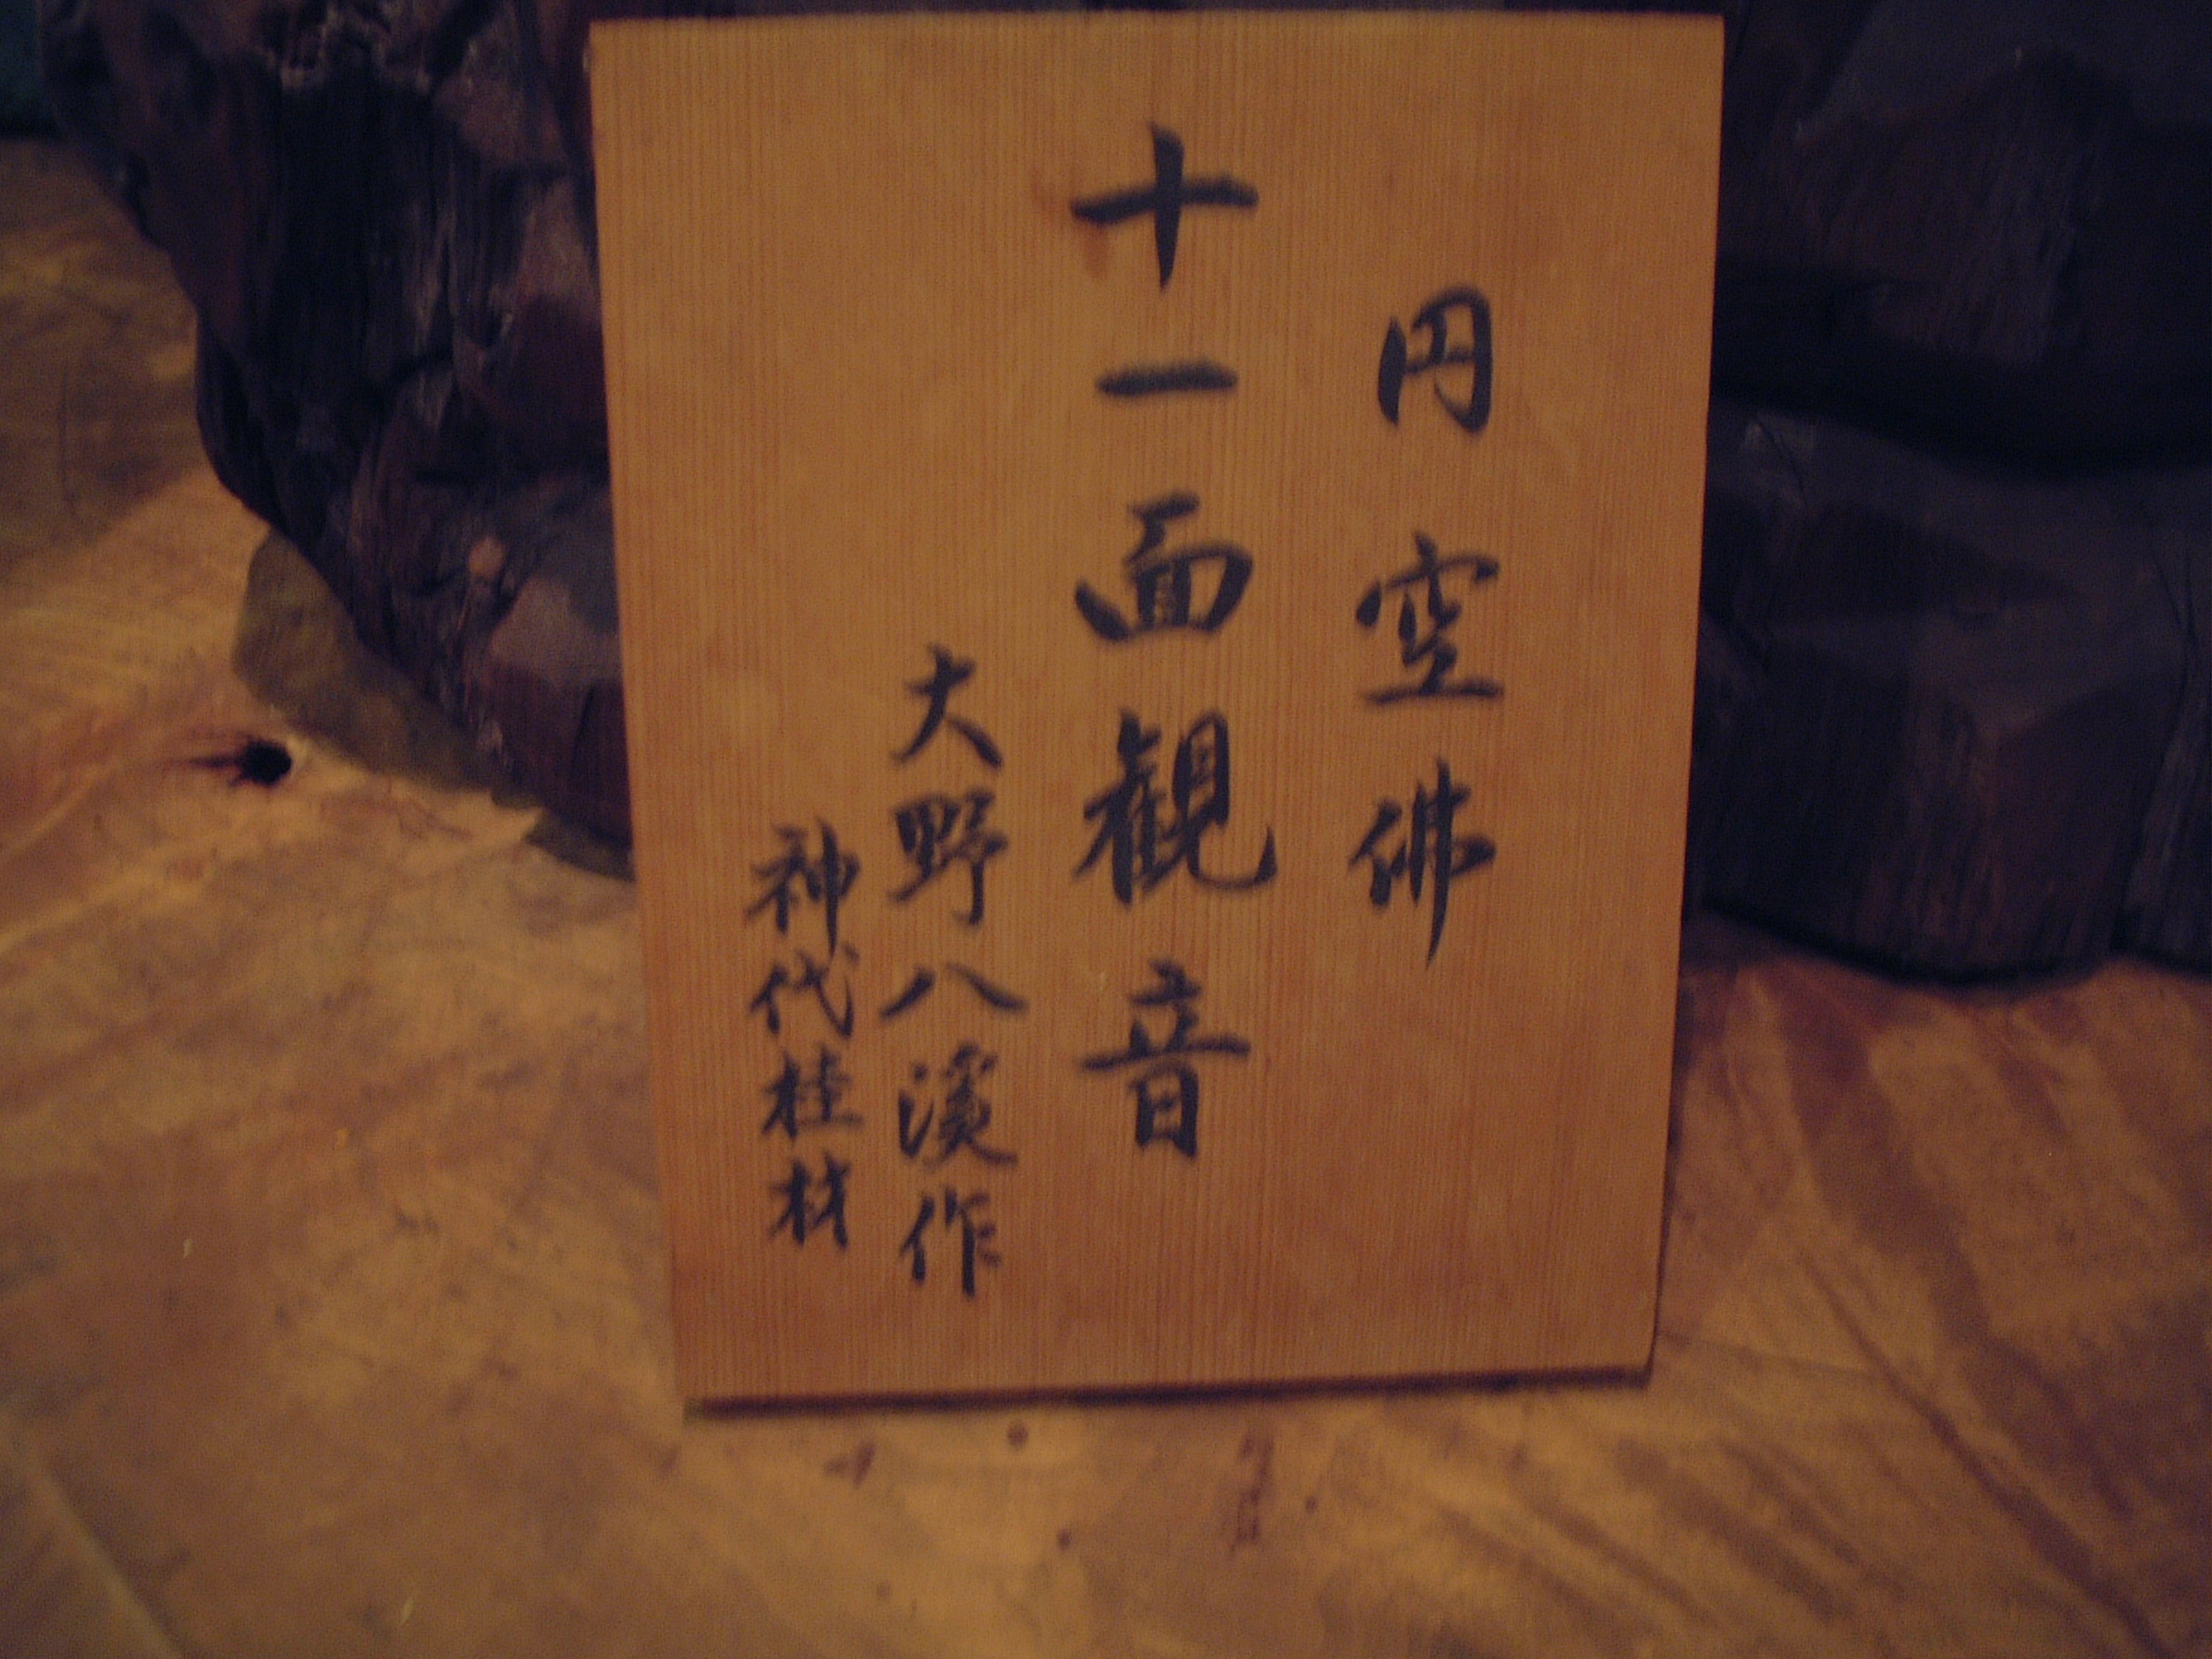 円空佛
十一面観音
大野八溪作
神代桂材